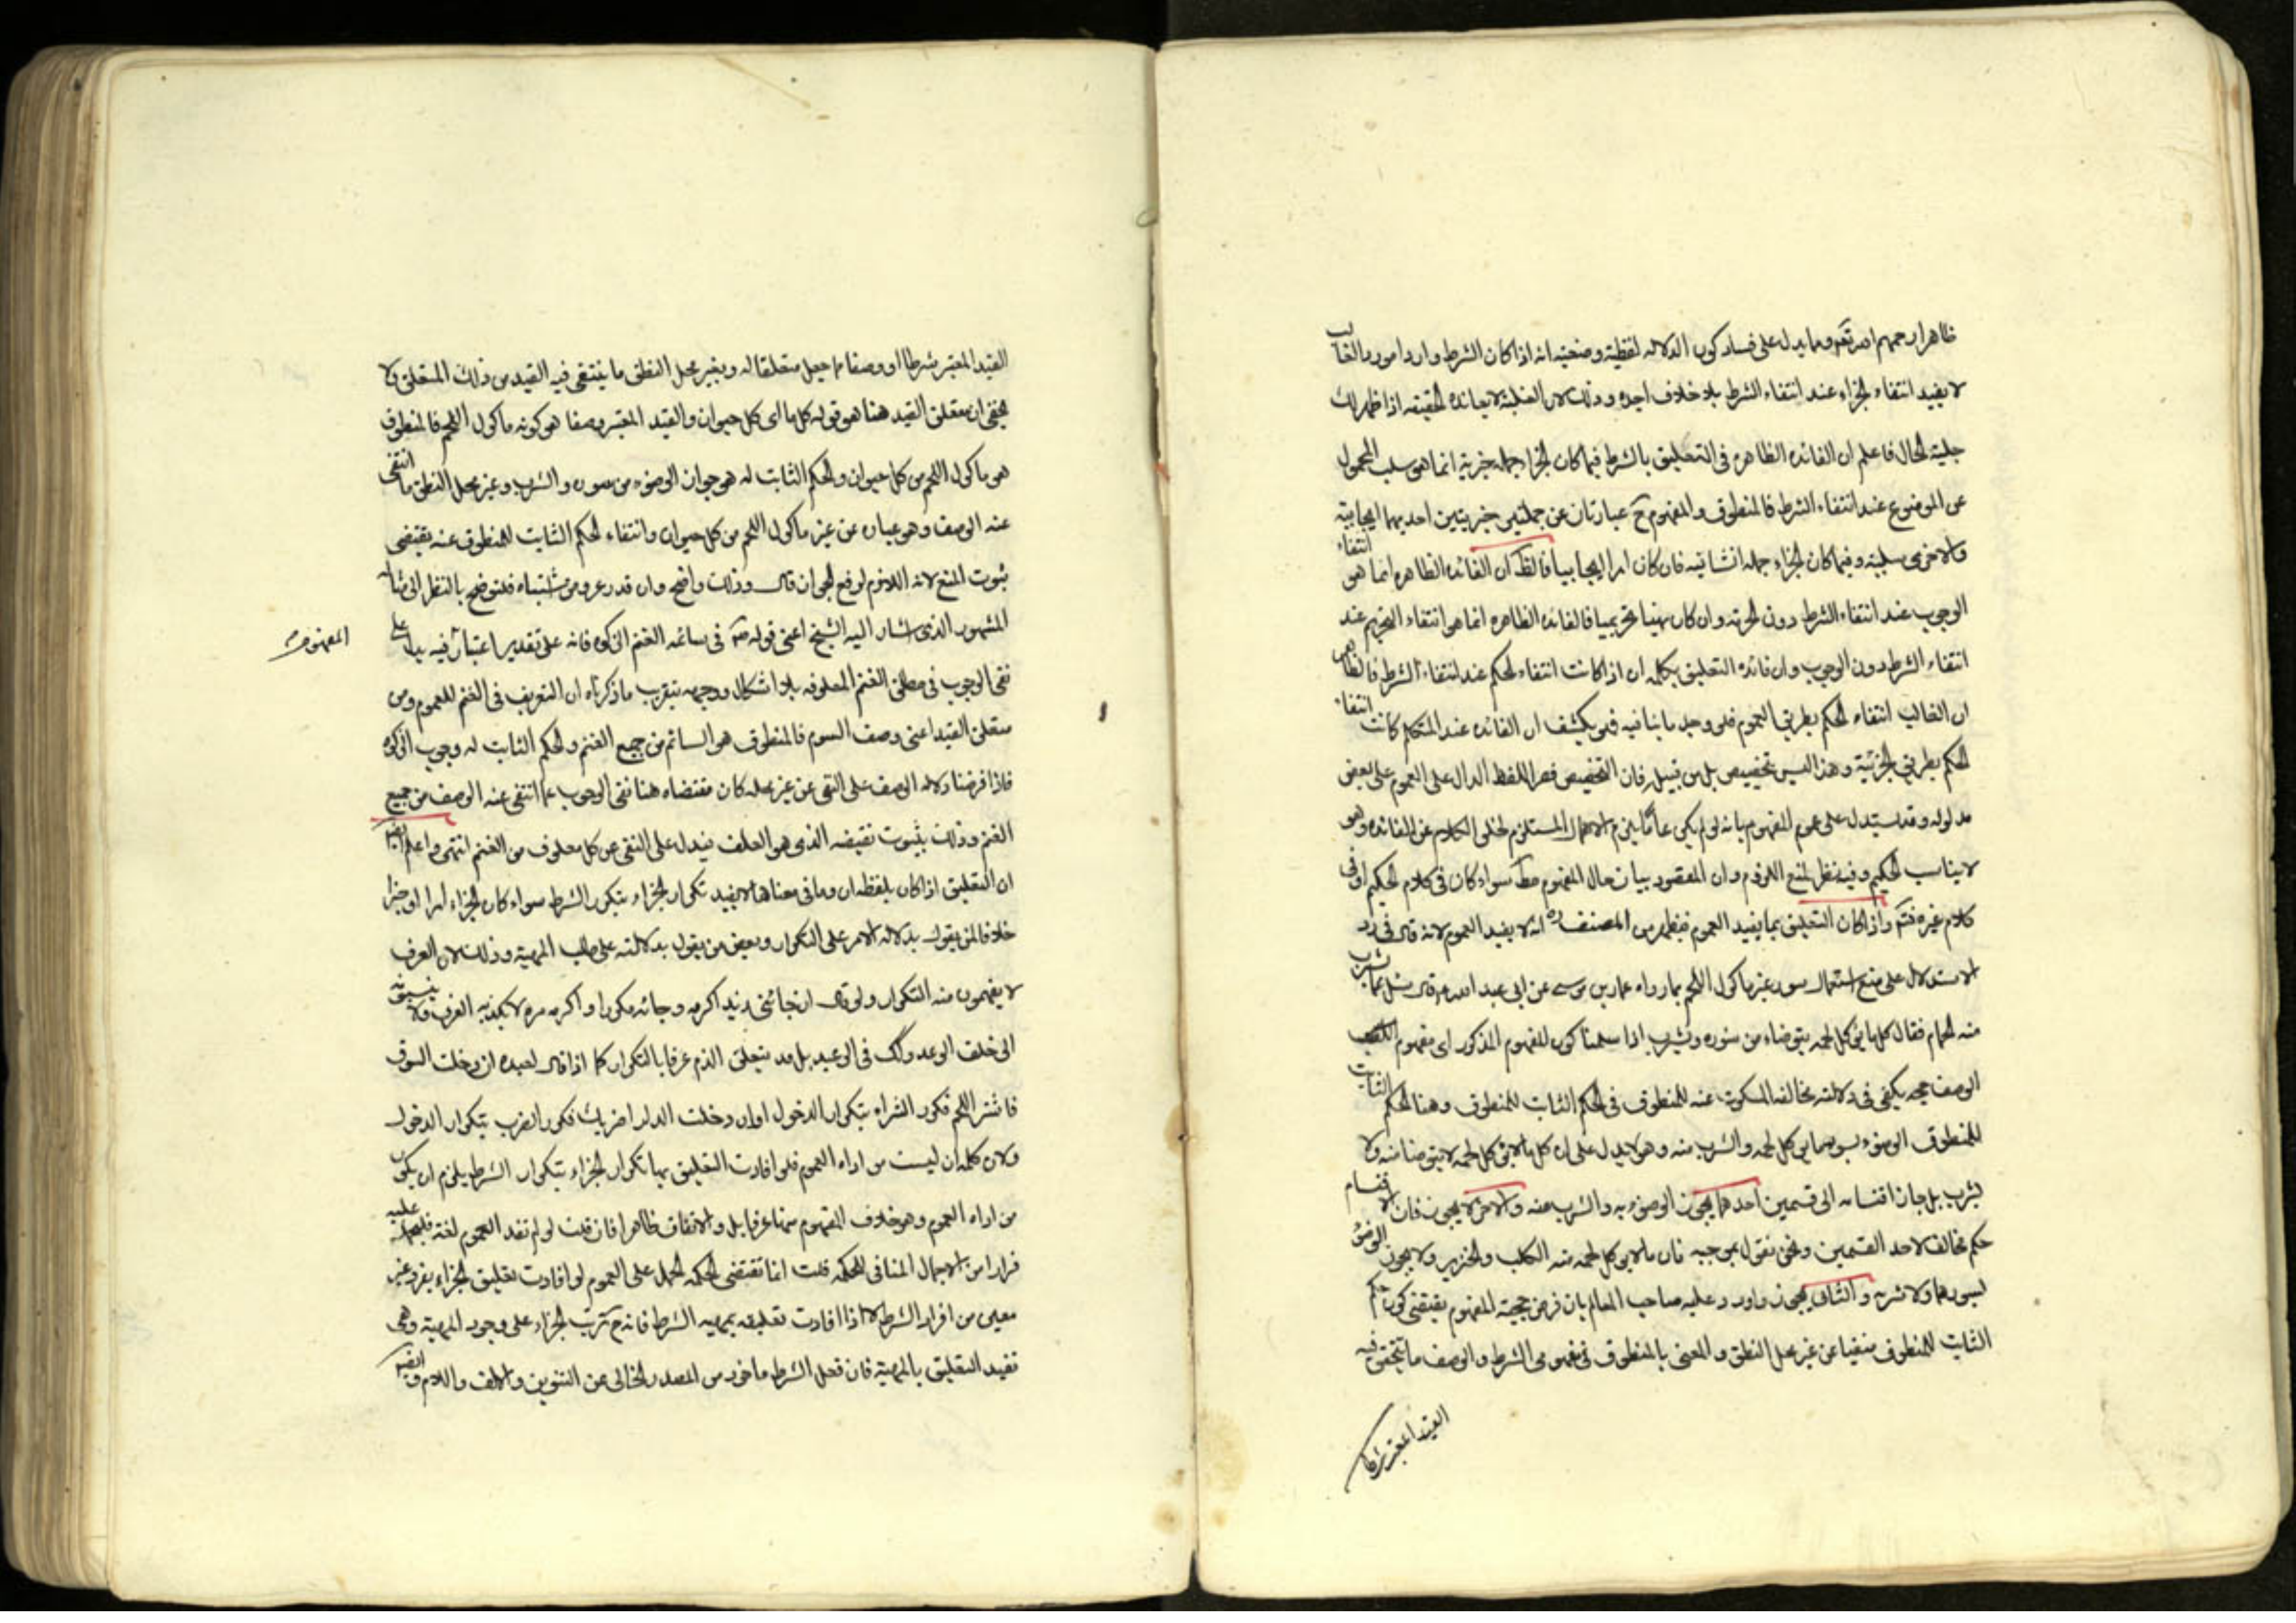 ظاهرا رحمهم الله تعالى ومما يدل على فساد كون الدلالة لفظية وضعية انه اذا كان الشرط واردا مورد الغالب
لا يفيد انتفاء الجزاء عند انتفاء الشرط بلا خلاف اجده وذلك لان الغلبة لا يعاند الحقيقة اذا ظهر لك
جلية الحال فاعلم ان الفائدة الظاهرة فى التعليق بالشرط فيما كان الجزاء جملة خبرية انما هى سلب المحمول
عن الموضوع عند انتفاء الشرط فالمنطوق والمفهوم ح عبارتان عن جملتين خبريتين احديهما ايجابية
والاخرى سلبية وفيما كان الجزاء جملة انشائية فان كان امرا ايجابيا فالظ ان الفائدة الظاهرة انما هو انتفاء
الوجوب عند انتفاء الشرط دون الحرمة وان كان نهيا تحريميا فالفائدة الظاهرة انما هى انتفاء التحريم عند
انتفاء الشرط دون الوجوب وان فائدة التعليق بكلمة ان اذا كانت انتفاء الحكم عند انتفاء الشرط فالظاهر
ان الغالب انتفاء الحكم بطريق العموم فلو وجد ما ينافيه فهو يكشف ان الفائدة عند المتكلم كانت انتفاء
الحكم بطريق الجزئية وهذا ليس بتخصيص بل من قبيله فان التخصيص قصر اللفظ الدال على العموم على بعض
مدلوله وقد يستدل على عموم المفهوم بانه لو لم يكن عاما يلزم الاهمال المستلزم لخلو الكلام عن الفائدة وهو
لا يناسب الحكيم وفيه نظر لمنع اللزوم وان المقصود بيان حال المفهوم مط سواء كان فى كلام الحكيم او فى
كلام غيره فتم واذا كان التعليق بما يفيد العموم فيظهر من المصنف ره انه لا يفيد العموم لانه قال فى رد
الاستدلال على منع استعمال سور غير ماكول اللحم بما رواه عمار بن موسى عن ابى عبد الله ع قال سئل عما تشرب
منه الحمام فقال كل ما يؤكل لحمه يتوضاء من سوره ويشرب اذا سلمنا كون المفهوم المذكور اى مفهوم
الوصف حجة يكفى فى دلالته مخالفة المسكوت عنه للمنطوق فى الحكم الثابت للمنطوق وهنا الحكم الثابت
للمنطوق الوضوء بسور ما يؤكل لحمه والشرب منه وهو لا يدل على ان كل ما لا يؤكل لحمه لا يتوضا منه ولا
يشرب بل جاز اقتسامه الى قسمين احدهما يجوز الوضوء به والشرب منه والاخر لا يجوز فان الاقسام
حكم مخالف لاحد القسمين ونحن نقول بموجبه فان ما لا يؤكل لحمه منه الكلب والخنزير ولا يجوز الوضوء
بسورهما ولا شربه والثانى يجوز واورد عليه صاحب المعالم بان فرض حجية المفهوم يقتضى كون حكم
الثابت للمنطوق منفيا عن غير محل النطق والمعنى بالمنطوق فى مفهومى الشرط والوصف ما يتحقق فيه
القيد المعتبر شرطا
القيد المعتبر شرطا او وصفا مما جعل متعلقا له وبغير محل النطق ما ينتفى فيه القيد من ذلك المتعلق ولا
يخفى ان متعلق القيد هنا هو قوله كل ما اى كل حيوان والقيد المعتبر وصفا هو كونه ماكول اللحم فالمنطوق
هو ماكول اللحم من كل حيوان والحكم الثابت له هو جواز الوضوء من سوره والشرب وغير محل النطق ما انتفى
عنه الوصف وهو عبارة عن غير ماكول اللحم من كل حيوان وانتفاء الحكم الثابت للمنطوق عنه يقتضى
ثبوت المنع لانه اللازم لرفع الجواز قال وذلك واضح وان قدر عروض اشتباه فليتوضح بالنظر الى مثال
المشهور الذى اشار اليه الشيخ اعنى قوله ص فى سائمة الغنم الزكوة فانه على تقدير اعتبار فيه يدل على
المفهوم
نفى الوجوب فى مطلق الغنم المعلوفة بلا اشكال ووجهه بتقريب ما ذكرناه ان التعريف فى الغنم للعموم ومن
متعلق القيد اعنى وصف السوم فالمنطوق هو السائم من جميع الغنم والحكم الثابت له وجوب الزكوة
فاذا فرضنا دلالة الوصف على النفى عن غير محله كان مقتضاه هنا نفى الوجوب عما انتفى عنه الوصف من جميع
الغنم وذلك بثبوت نقيضه الذى هو العلف فيدل على النفى عن كل معلوف من الغنم انتهى واعلم ايضا
ان التعليق اذا كان بلفظة ان وما فى معناها لا يفيد تكرار الجزاء بتكرر الشرط سواء كان الجزاء امرا او خبرا
خلافا لمن يقول بدلالة الامر على التكرار وبعض من يقول بدلالته على طلب المهية وذلك لان العرف
لا يفهمون منه التكرار ولو قال ان جائنى زيد اكرمه وجائه مكررا واكرمه مرة لا يكذبه العرف ولا ينسبونه
الى خلف الوعد وكك فى الوعيد بل قد يتعلق الذم عرفا بالتكرار كما اذا قال لعبده ان دخلت السوق
فاشتر اللحم فكرر الشراء بتكرار الدخول او ان دخلت الدار اضربك فكرر الضرب بتكرار الدخول
ولان كلمة ان ليست من اداة العموم فلو افادت التعليق بها تكرار الجزاء بتكرار الشرط يلزم ان يكون
من اداة العموم وهو خلاف المفهوم منها عرفا بل والاتفاق ظاهرا فان قلت لو لم تفد العموم لغة فليحمل عليه
فرارا من الاجمال المنافى للحكمة قلت انما تقتضى الحكمة الحمل على العموم لو افادت تعليق الجزاء بفرد غير
معين من افراد الشرط لا اذا افادت تعليقه بمهية الشرط فانه ح ترتب الجزاء على وجود المهية وهى
تفيد التعليق بالمهية فان فعل الشرط ماخوذ من المصدر الخالى عن التنوين والالف واللام